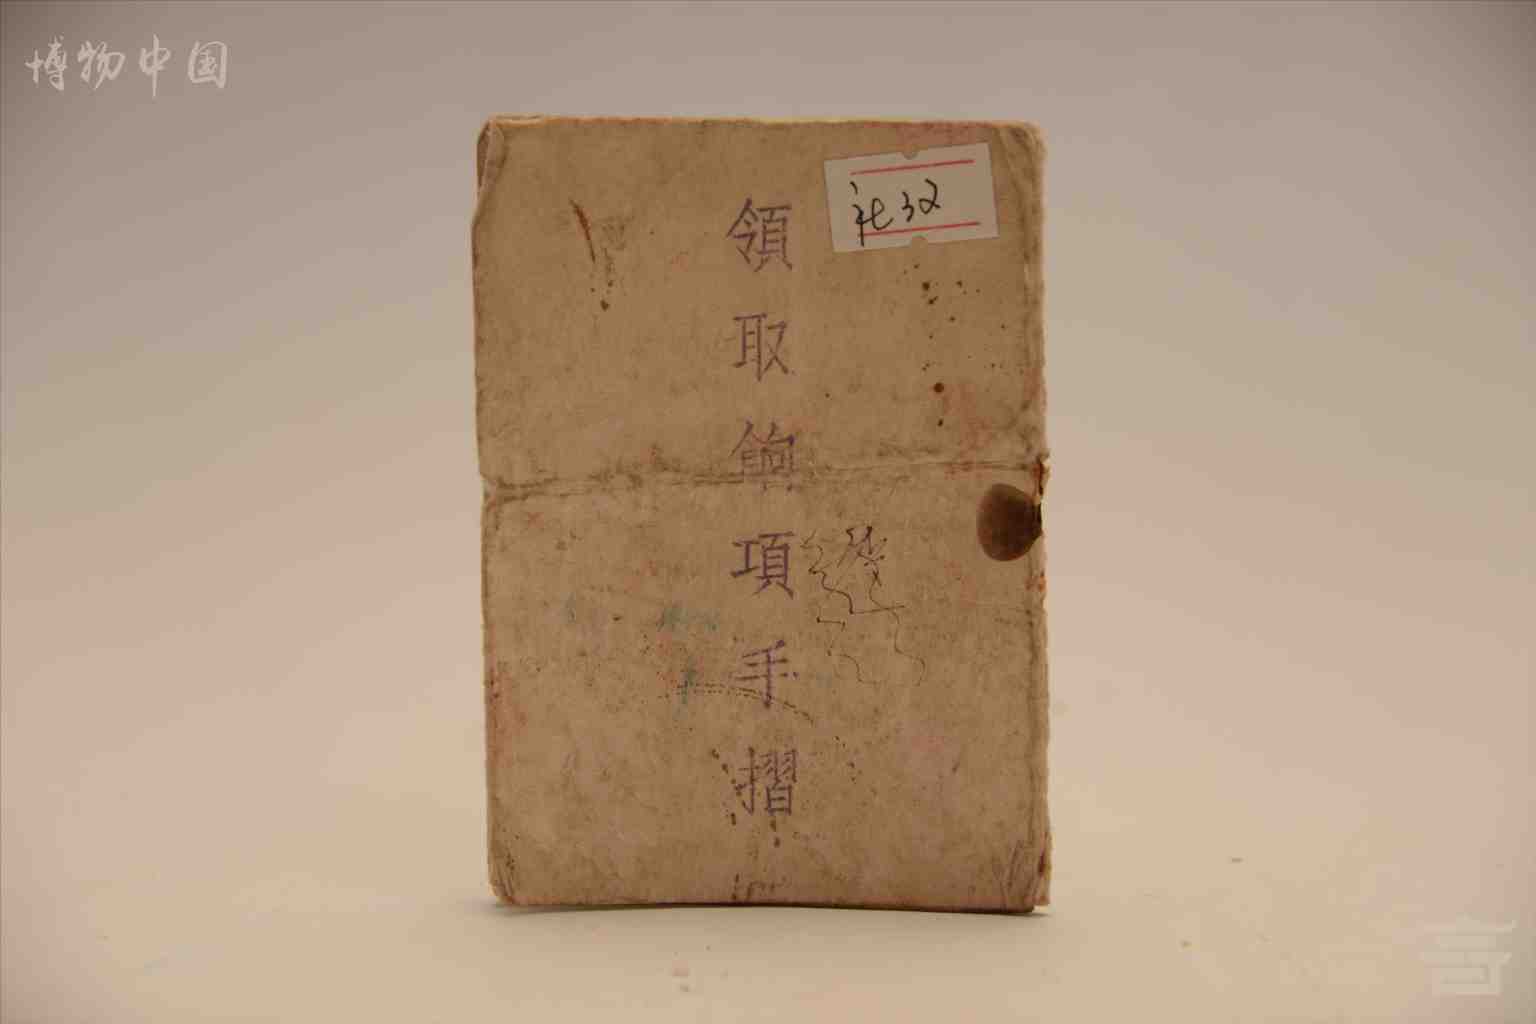 博物中国
社32
領取餉項手摺